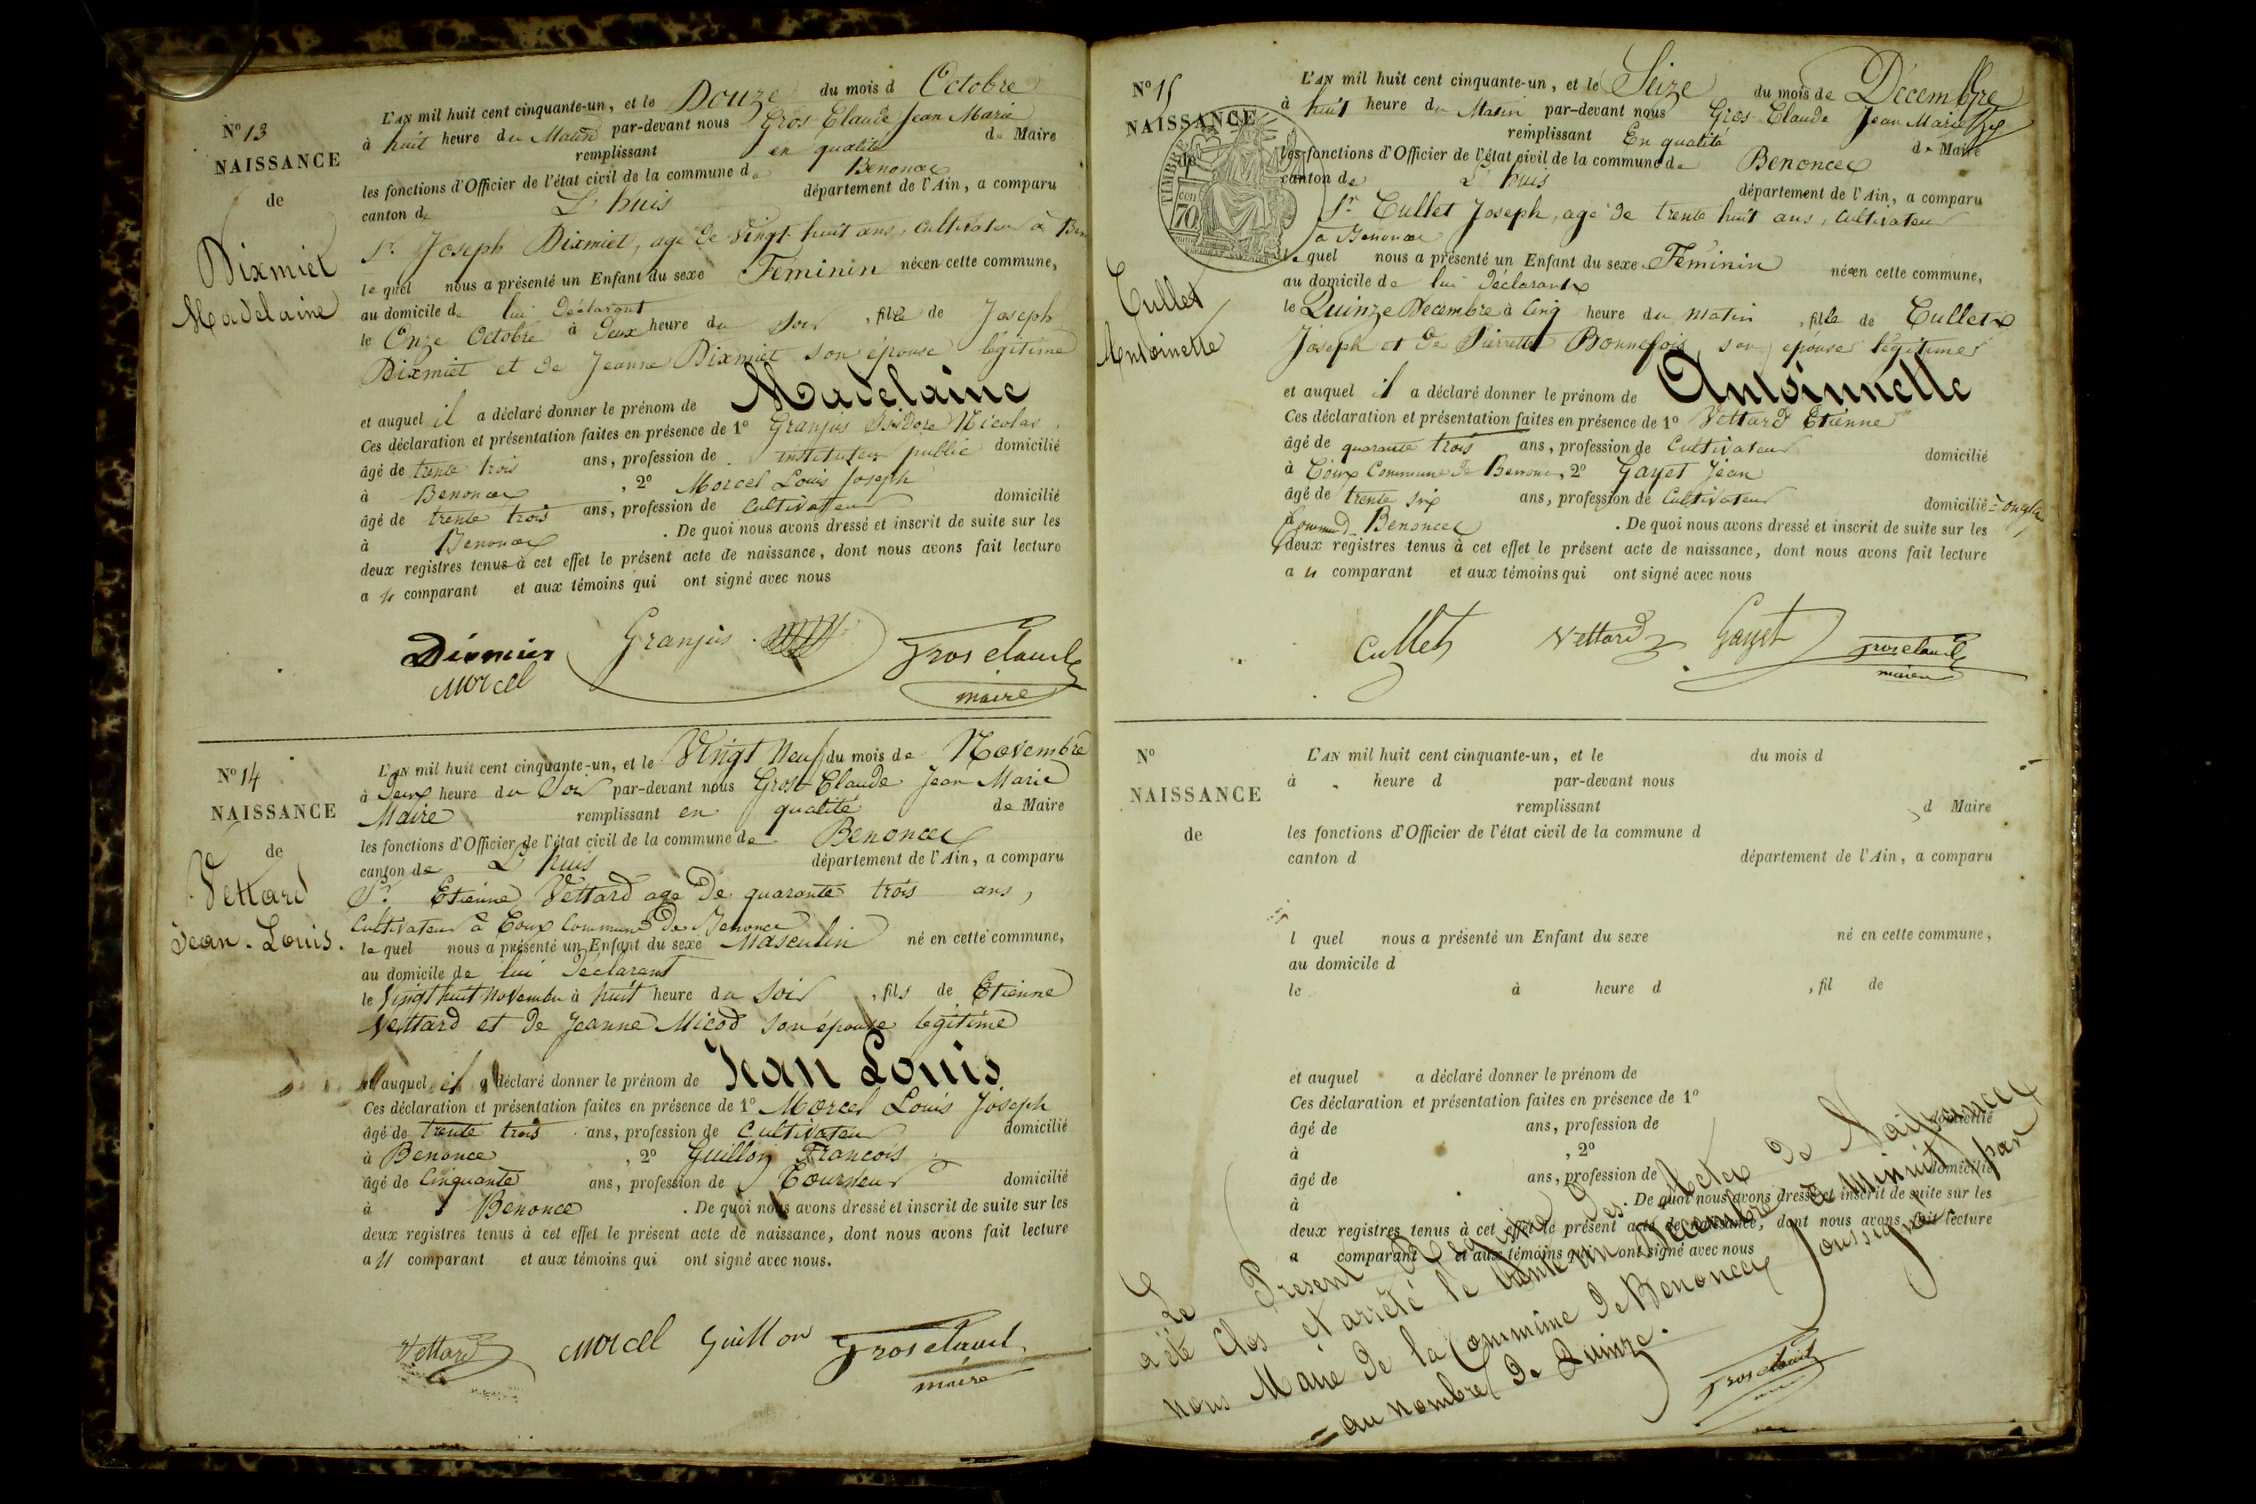 Nº 13
NAISSANCE
de
Dixmiet
Madelaine
L'AN mil huit cent cinquante-un, et le Douze du mois d Octobre
à huit heure du Matin par-devant nous Gros Claude Jean Marie
remplissant en qualité de Maire
les fonctions d'Officier de l'état civil de la commune de Benonce
canton de L'huis département de l'Ain, a comparu
Sr. Joseph Dixmiet, agé de Vingt huit ans, Cultivateur à Ben
le quel nous a présenté un Enfant du sexe Féminin née en cette commune,
au domicile de lui Déclarant
le Onze Octobre à deux heure du soir, fille de Joseph
Dixmiet et de Jeanne Dixmiet son épouse légitime
et auquel il a déclaré donner le prénom de Madelaine
Ces déclaration et présentation faites en présence de 1º Granjus Isidore Nicolas
âgé de trente trois ans, profession de instituteur public domicilié
à Benonce, 2º Morcel Louis Joseph
âgé de trente trois ans, profession de Cultivateur domicilié
à Benonce. De quoi nous avons dressé et inscrit de suite sur les
deux registres tenus à cet effet le présent acte de naissance, dont nous avons fait lecture
a u comparant et aux témoins qui ont signé avec nous
Dixmier Granjus Gros claude
Morcel maire
Nº 14
NAISSANCE
de
Vettard
Jean-Louis.
L'AN mil huit cent cinquante-un, et le Vingt Neuf du mois de Novembre
à Deux heure du Soir par-devant nous Gros Claude Jean Marie
Maire remplissant en qualité de Maire
les fonctions d'Officier de l'état civil de la commune de Benonce
canton de L'huis département de l'Ain, a comparu
Sr. Etienne Vettard agé De quarante trois ans,
Cultivateur à Coux Commune De Benonce
le quel nous a présenté un Enfant du sexe Masculin né en cette commune,
au domicile de lui Déclarant
le Vingt huit Novembre à huit heure du Soir, fils de Etienne
Vettard et de Jeanne Micod son épouse légitime
et auquel il a déclaré donner le prénom de Jean Louis
Ces déclaration et présentation faites en présence de 1º Morcel Louis Joseph
âgé de trente trois ans, profession de Cultivateur domicilié
à Benonce, 2º Guillon Francois
âgé de Cinquante ans, profession de Tourneur domicilié
à Benonce. De quoi nous avons dressé et inscrit de suite sur les
deux registres tenus à cet effet le présent acte de naissance, dont nous avons fait lecture
a u comparant et aux témoins qui ont signé avec nous.
Vettard Morcel Guillon Gros claude
maire
Nº 15
NAISSANCE
de
TIMBRE
70
Cullet
Antoinette
L'AN mil huit cent cinquante-un, et le Seize du mois de Décembre
à huit heure du Matin par-devant nous Gros Claude Jean Marie
remplissant En qualité de Maire
les fonctions d'Officier de l'état civil de la commune de Benonce
canton de L'huis département de l'Ain, a comparu
Sr. Cullet Joseph, agé de trente huit ans, Cultivateur
a Benonce
le quel nous a présenté un Enfant du sexe Féminin née en cette commune,
au domicile de lui déclarant
le Quinze Décembre à cinq heure du matin, fille de Cullet
Joseph et De Pierrette Bonnefois son epouse légitime
et auquel il a déclaré donner le prénom de Antoinnette
Ces déclaration et présentation faites en présence de 1º Vettard Etienne
âgé de quarante trois ans, profession de Cultivateur domicilié
à Coux Commune de Benonce, 2º Gayet Jean
âgé de trente six ans, profession de Cultivateur domicilié
à Commune d Benonce. De quoi nous avons dressé et inscrit de suite sur les
deux registres tenus à cet effet le présent acte de naissance, dont nous avons fait lecture
a u comparant et aux témoins qui ont signé avec nous
Cullet Vettard Gayet Gros claude
maire
Nº
NAISSANCE
de
L'AN mil huit cent cinquante-un, et le du mois d
à heure d par-devant nous
remplissant d Maire
les fonctions d'Officier de l'état civil de la commune d
canton d département de l'Ain, a comparu
l quel nous a présenté un Enfant du sexe né en cette commune,
au domicile d
le à heure d, fil de
et auquel a déclaré donner le prénom de
Ces déclaration et présentation faites en présence de 1º
âgé de ans, profession de domicilié
à, 2º
âgé de ans, profession de domicilié
à. De quoi nous avons dressé et inscrit de suite sur les
deux registres tenus à cet effet le présent acte de naissance, dont nous avons fait lecture
a comparant et aux témoins qui ont signé avec nous
Le Présent Registre Des Actes De Naissance
a été Clos et arrêté le trente un Décembre a Minuit par
nous Maire De la Commune De Benonce Soussigné
= au nombre De Quinze.
Gros claude